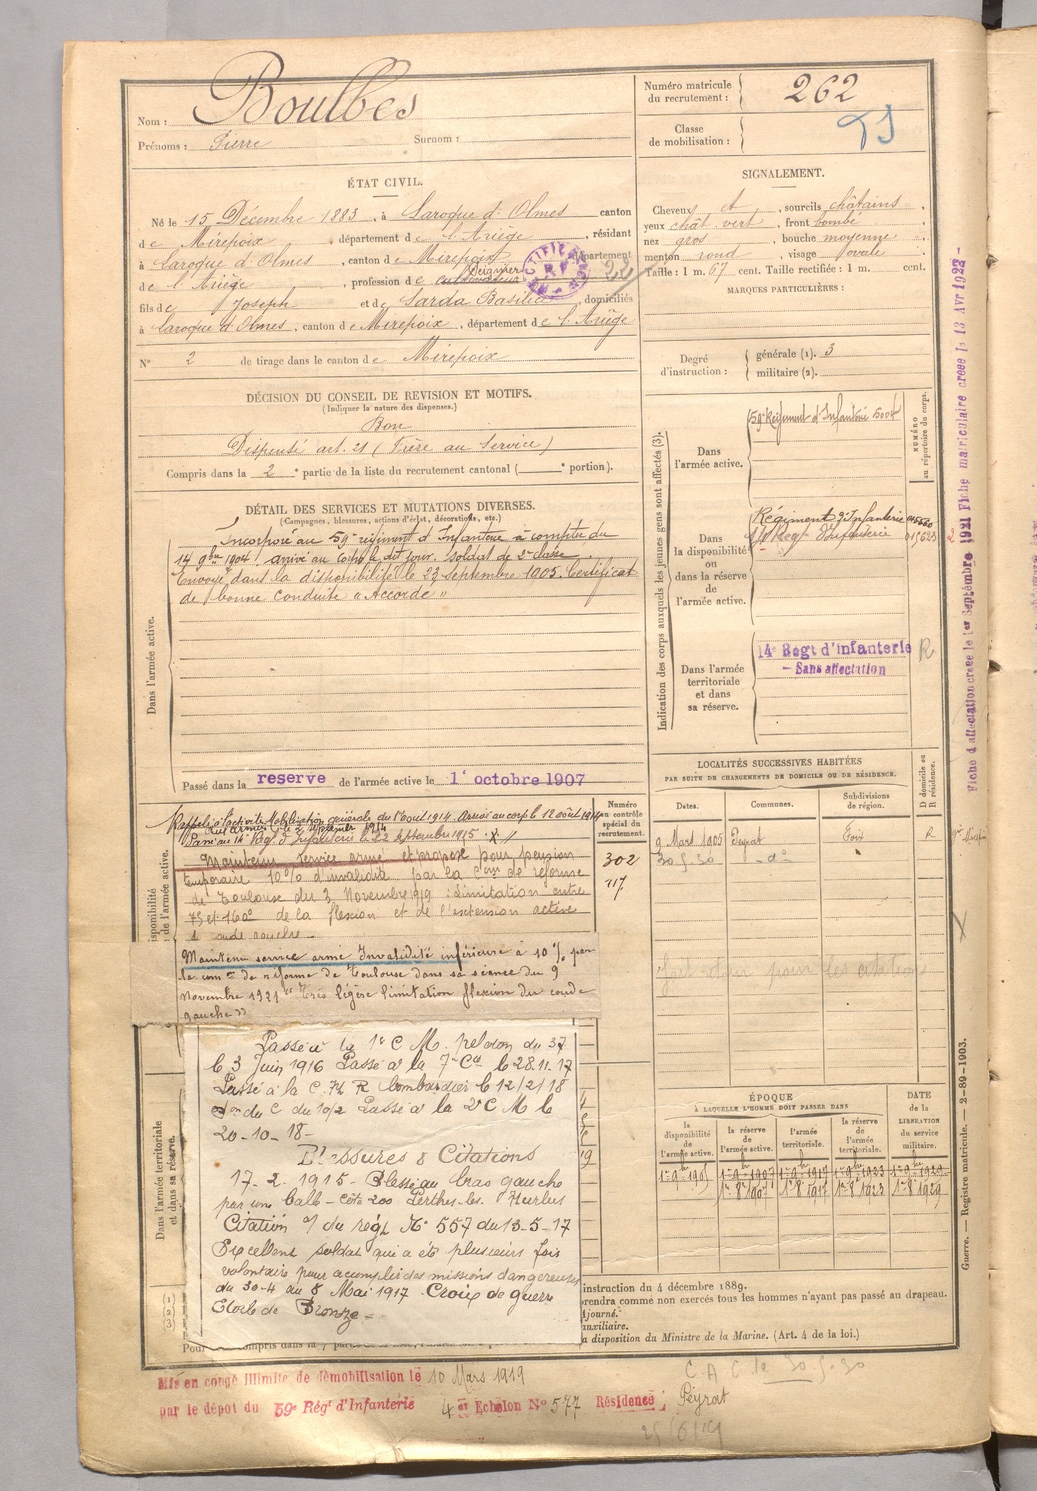 Nom : Boulbes
Prénoms : Pierre Surnom :
Numéro matricule du recrutement : 262
Classe de mobilisation :
ÉTAT CIVIL.
Né le 15 Décembre 1883, à Laroque d'Olmes canton
de Mirepoix, département de l'Ariège, résidant
à Laroque d'Olmes, canton de Mirepoix, département
de l'Ariège, profession de cultivateur Peigneur
fils de Joseph et de Sarda Basilie, domiciliés
à Laroque d'Olmes, canton de Mirepoix, département de l'Ariège
N° 2 de tirage dans le canton de Mirepoix
22
SIGNALEMENT.
Cheveux et, sourcils châtains,
yeux chât vert, front bombé
nez gros, bouche moyenne
menton rond, visage ovale
Taille : 1 m. 67 cent. Taille rectifiée : 1 m. cent.
MARQUES PARTICULIÈRES :
Degré d'instruction : générale (1). 3
militaire (2).
DÉCISION DU CONSEIL DE REVISION ET MOTIFS.
(Indiquer la nature des dispenses.)
Bon
Dispensé art. 21 (Frère au Service)
Compris dans la 2e partie de la liste du recrutement cantonal ( e portion).
DÉTAIL DES SERVICES ET MUTATIONS DIVERSES.
(Campagnes, blessures, actions d'éclat, décorations, etc.)
Dans l'armée active.
Incorporé au 59e régiment d'Infanterie à compter du
14 9bre 1904, arrivé au corps le dit jour, soldat de 2e classe.
Envoyé dans la disponibilité le 23 septembre 1905. Certificat
de bonne conduite "Accordé"
Passé dans la reserve de l'armée active le 1er octobre 1907
Indication des corps auxquels les jeunes gens sont affectés (3).
NUMÉRO au répertoire du corps.
Dans l'armée active.
59e Régiment d'Infanterie 5004
Dans la disponibilité ou dans la réserve de l'armée active.
Régiment d'Infanterie
Regt d'Infanterie
Dans l'armée territoriale et dans sa réserve.
14e Regt d'infanterie R
- Sans affectation
Rappelé à l'activité Mobilisation générale du 1er août 1914. Arrivé au corps le 12 août 1914
Aux armées le 2 septembre 1914
Passé au 14e Reg. d'Infanterie le 22 septembre 1915
Maintenu service armé et proposé pour pension
temporaire 10% d'invalidité par la Com de réforme
de Toulouse du 3 Novembre 1919 : Limitation entre
75 et 160° de la flexion et de l'extension active
coude gauche
Maintenu service armé Invalidité inférieure à 10% par
la com on de réforme de Toulouse dans sa séance du 9
novembre 1921 "Très légère limitation flexion du coude
gauche"
Numéro au contrôle spécial du recrutement.
302
417
Passé à la 1e C M. peloton du 37
le 3 Juin 1916 Passé à la 7e Cie le 28.11.17
Passé à la C. H R bombardier le 12/2/18
on du C du 10/2 Passé à la 2e C M le
20-10-18-
Blessures & Citations
17-2-1915- Blessé au bras gauche
par une balle- côte 200 Perthes-les-Hurlus
Citation O/ du régt N° 557 du 13-5-17
Excellent soldat qui a été plusieurs fois
volontaire pour accomplir des missions dangereuses
du 30-4 au 8 Mai 1917 Croix de guerre
Etoile de Bronze =
Dans l'armée territoriale et dans sa réserve.
LOCALITÉS SUCCESSIVES HABITÉES
PAR SUITE DE CHANGEMENTS DE DOMICILE OU DE RÉSIDENCE.
Dates. Communes. Subdivisions de région. D domicile ou R résidence.
9 Mars 1905 Peyrat Foix R
30-5-30 -d°-
ÉPOQUE
À LAQUELLE L'HOMME DOIT PASSER DANS
la disponibilité de l'armée active. la réserve de l'armée active. l'armée territoriale. la réserve de l'armée territoriale.
DATE de la LIBÉRATION du service militaire.
1er 9bre 1905 1er 9bre 1907 1er 9bre 1917 1er 9bre 1923 1er 9bre 1929
1er 8bre 1907 1er 8bre 1917 1er 8bre 1923 1er 8bre 1929
instruction du 4 décembre 1889.
prendra comme non exercés tous les hommes n'ayant pas passé au drapeau.
ajourné.
auxiliaire.
a disposition du Ministre de la Marine. (Art. 4 de la loi.)
Fiche d'affectation créée le 1er Septembre 1921 Fiche matriculaire créée le 13 Avr 1922 -
Guerre. — Registre matricule. — 2-89-1903.
Mis en congé illimité de démobilisation le 10 Mars 1919
par le dépôt du 59e Régt d'Infanterie 4 er Echelon N° 577 Résidence : Peyrat
C A C le 30-5-30
25/6/19